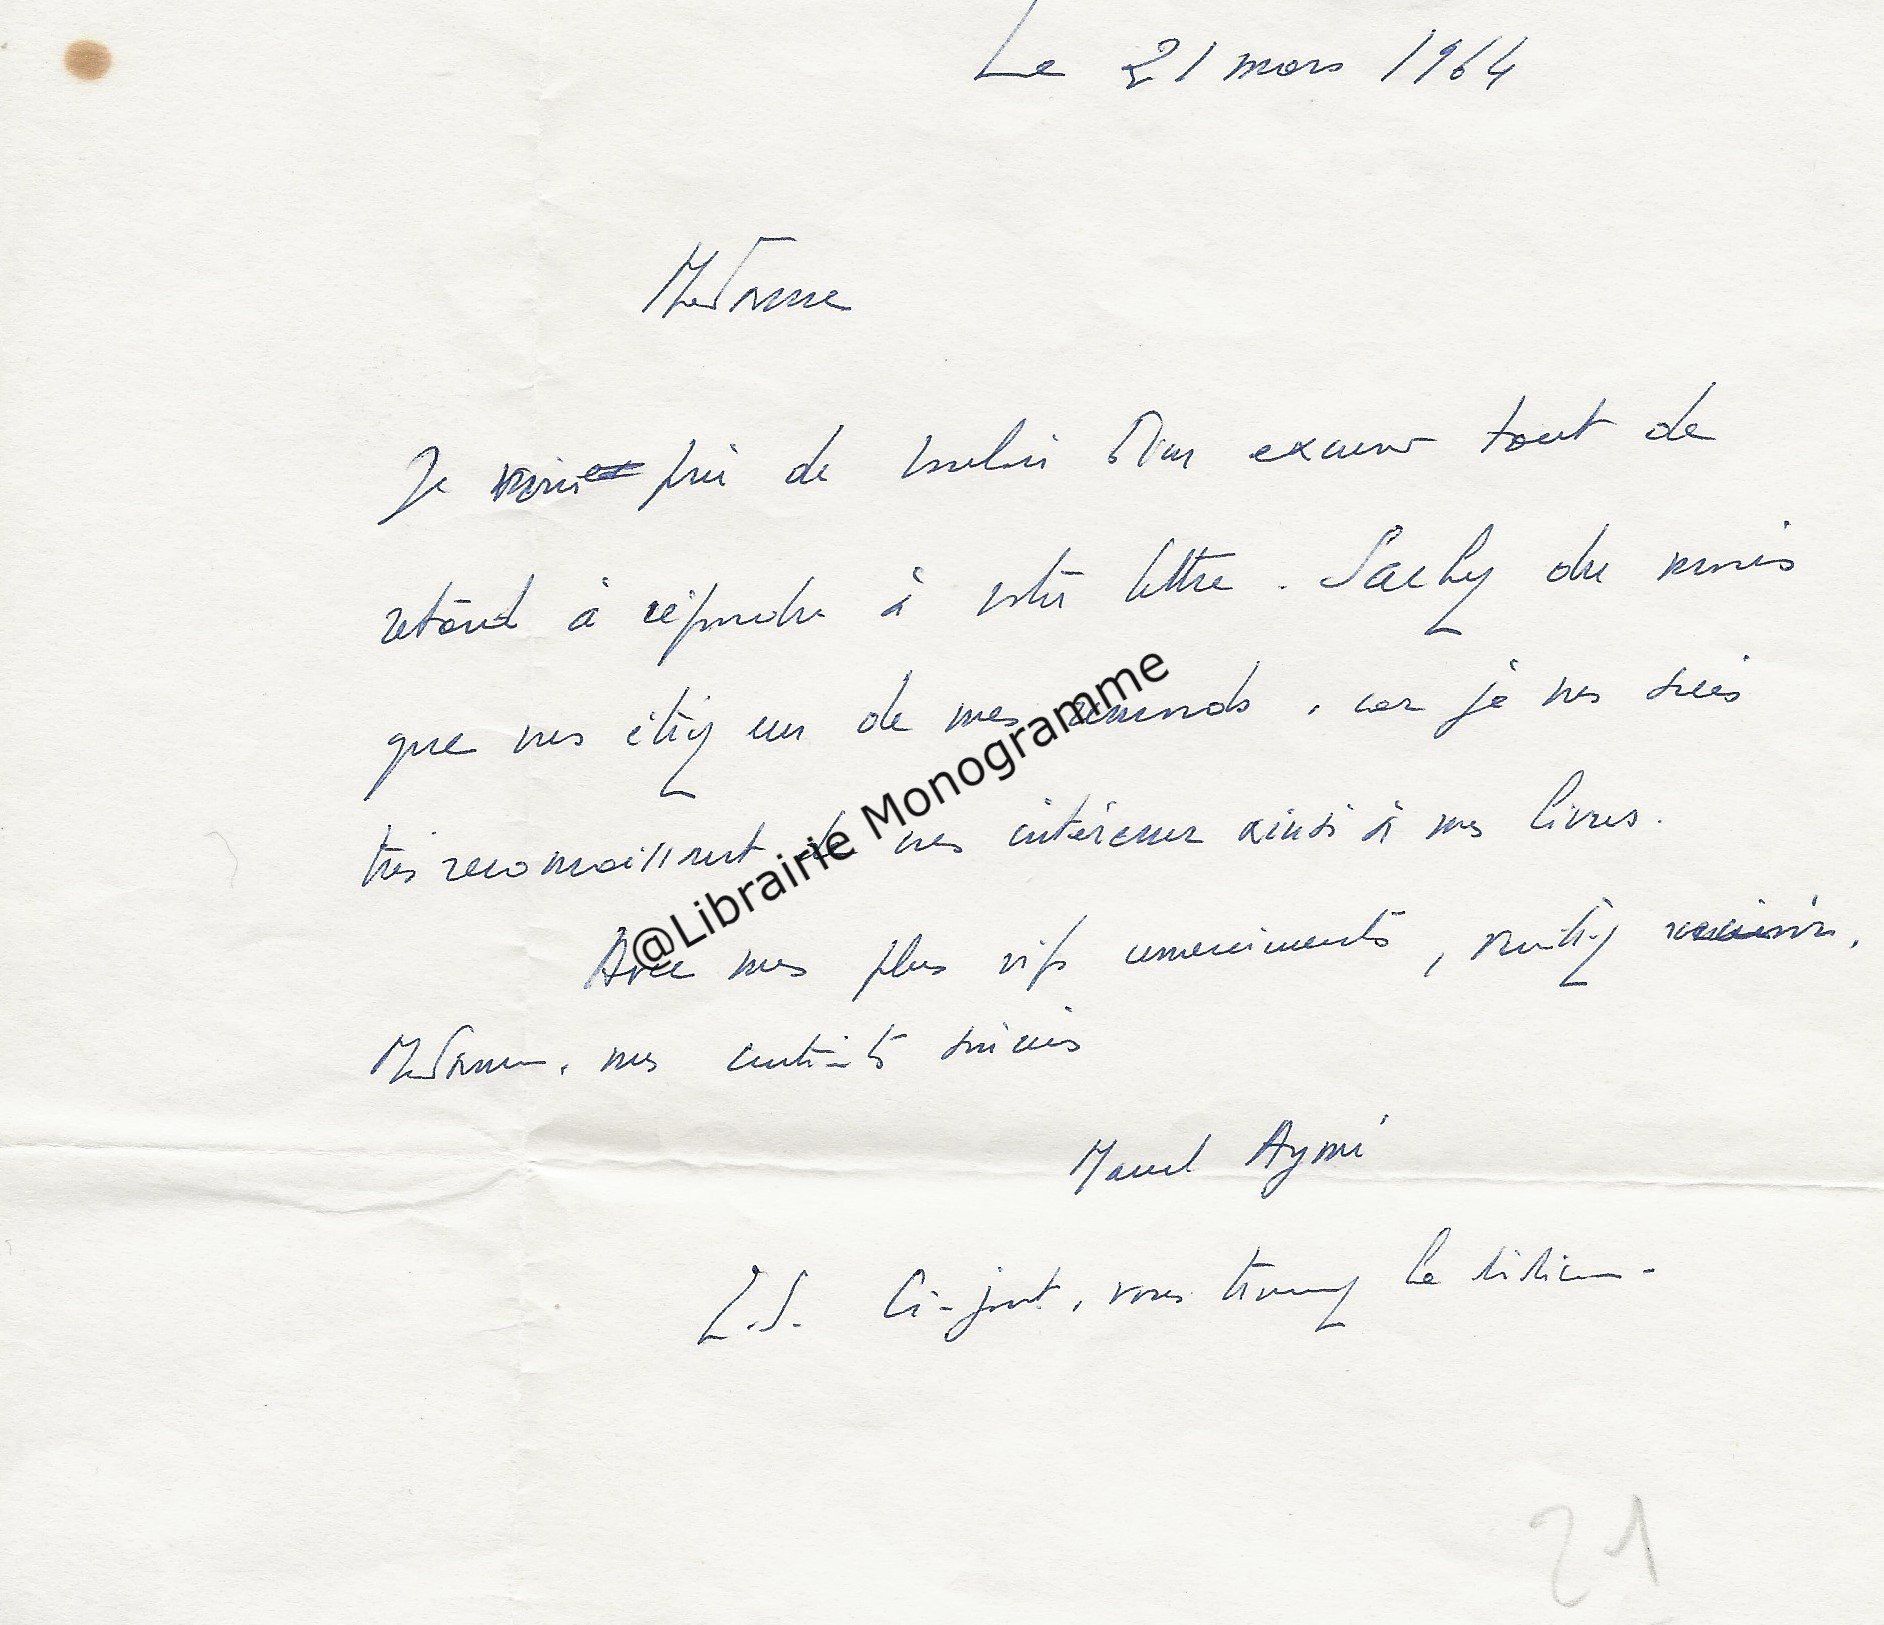 Le 21 mars 1964
Madame
Je vous prie de vouloir bien excuser tout de
retard à répondre à votre lettre. Sachez du moins
que vous étiez un de mes remords, car je vous suis
très reconnaissant de vous intéresser ainsi à mes livres.
@Librairie Monogramme
Avec mes plus vifs remerciements, veuillez recevoir,
Madame, mes sentiments
Marcel Aymé
P.S. Ci-joint, vous trouverez le
21